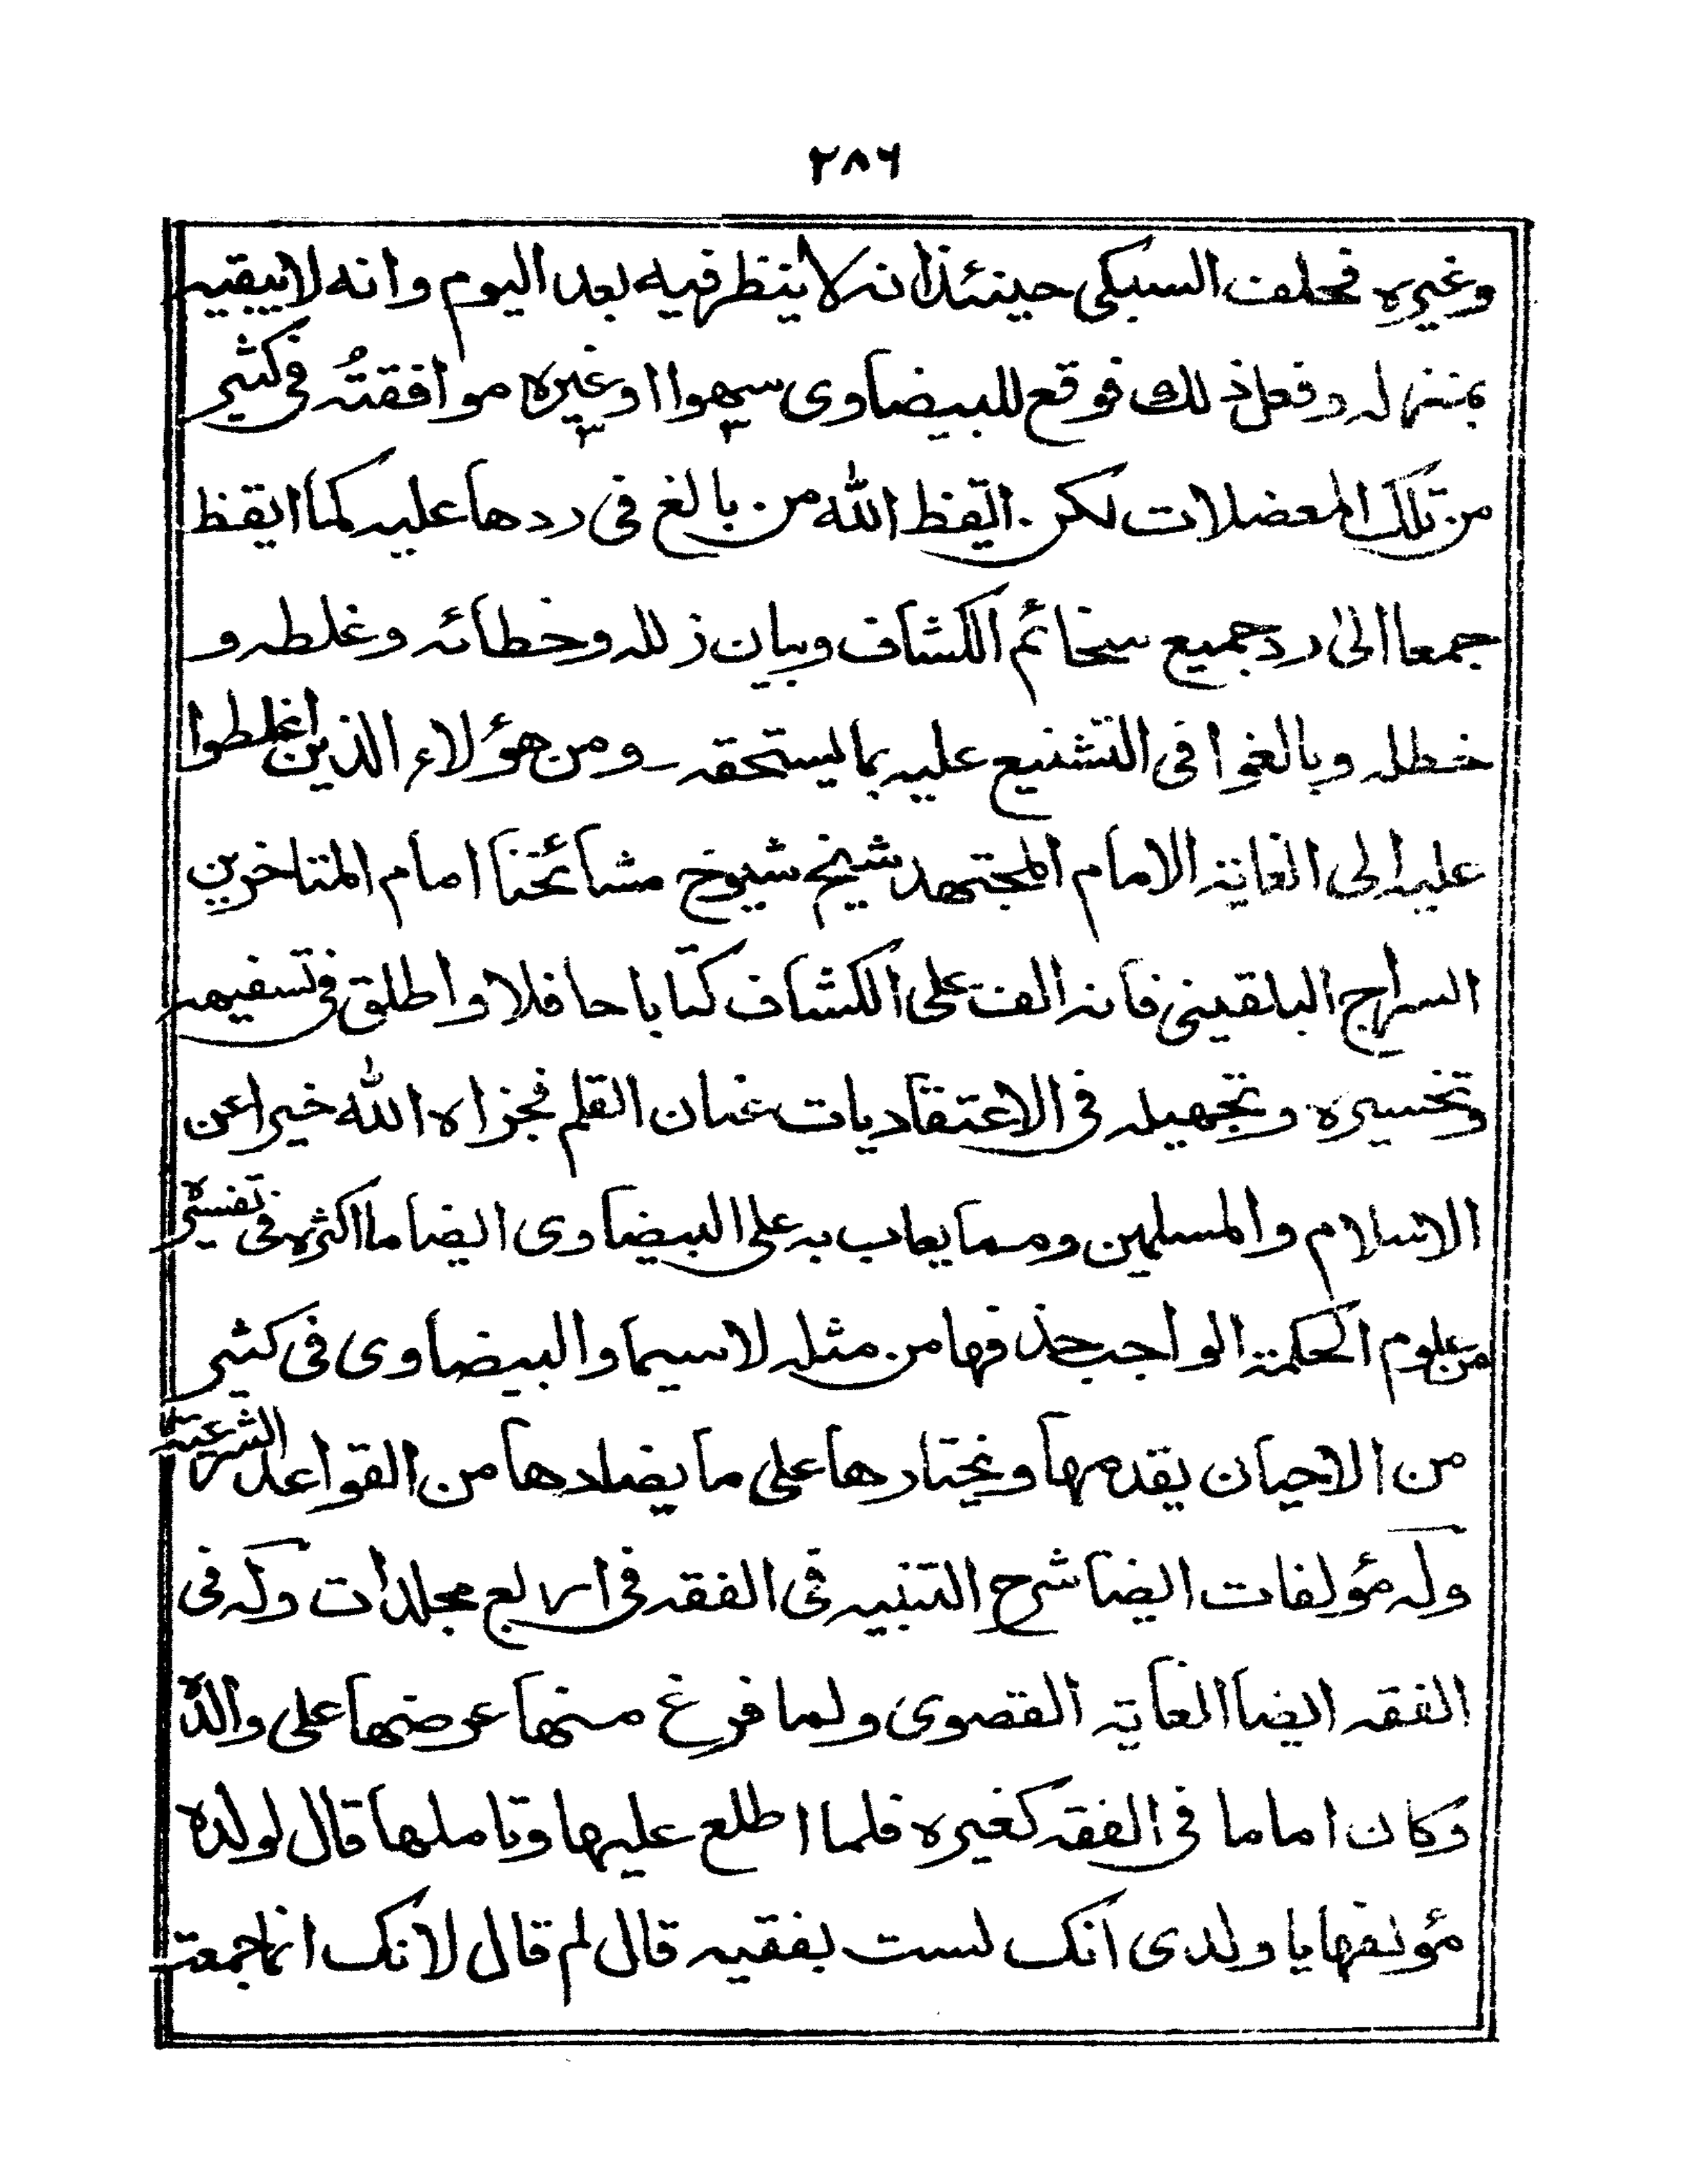 ٢٨٦
وغيره فحلف السبكى حينئذ انه لا ينظر فيه بعد اليوم وانه لا يبقيه
بمنزله وفعل ذلك فوقع للبيضاوى سهوا او غيره موافقتُه فى كثير
من تلك المعضلات لكن ايقظ الله من بالغ فى ردها عليه كما ايقظ
جمعا الى رد جميع سخائم الكشاف وبيان زلله وخطائه وغلطه و
خطله وبالغوا فى التشنيع عليه بما يستحقه ومن هؤلاء الذين اغلظوا
عليه الى الغاية الامام المجتهد شيخ شيوخ مشائخنا امام المتاخرين
السراج البلقينى فانه الف على الكشاف كتابا حافلا واطلق فى تسفيهه
وتخسيره وتجهيله فى الاعتقاديات عنان القلم فجزاه الله خيرا عن
الاسلام والمسلمين ومما يعاب به على البيضاوى ايضا ما اكثره فى تفسيره
من علوم الحكمة الواجب حذفها من مثله لا سيما والبيضاوى فى كثير
من الاحيان يقدمها ويختارها على ما يضادها من القواعد الشرعية
وله مؤلفات ايضا شرح التنبيه فى الفقه فى اربع مجلدات وله فى
الفقه ايضا الغاية القصوى ولما فرغ منها عرضها على والده
وكان اماما فى الفقه كغيره فلما اطلع عليها وتاملها قال لولده
مؤلفها يا ولدى انك لست بفقيه قال لم قال لانك انما جمعت